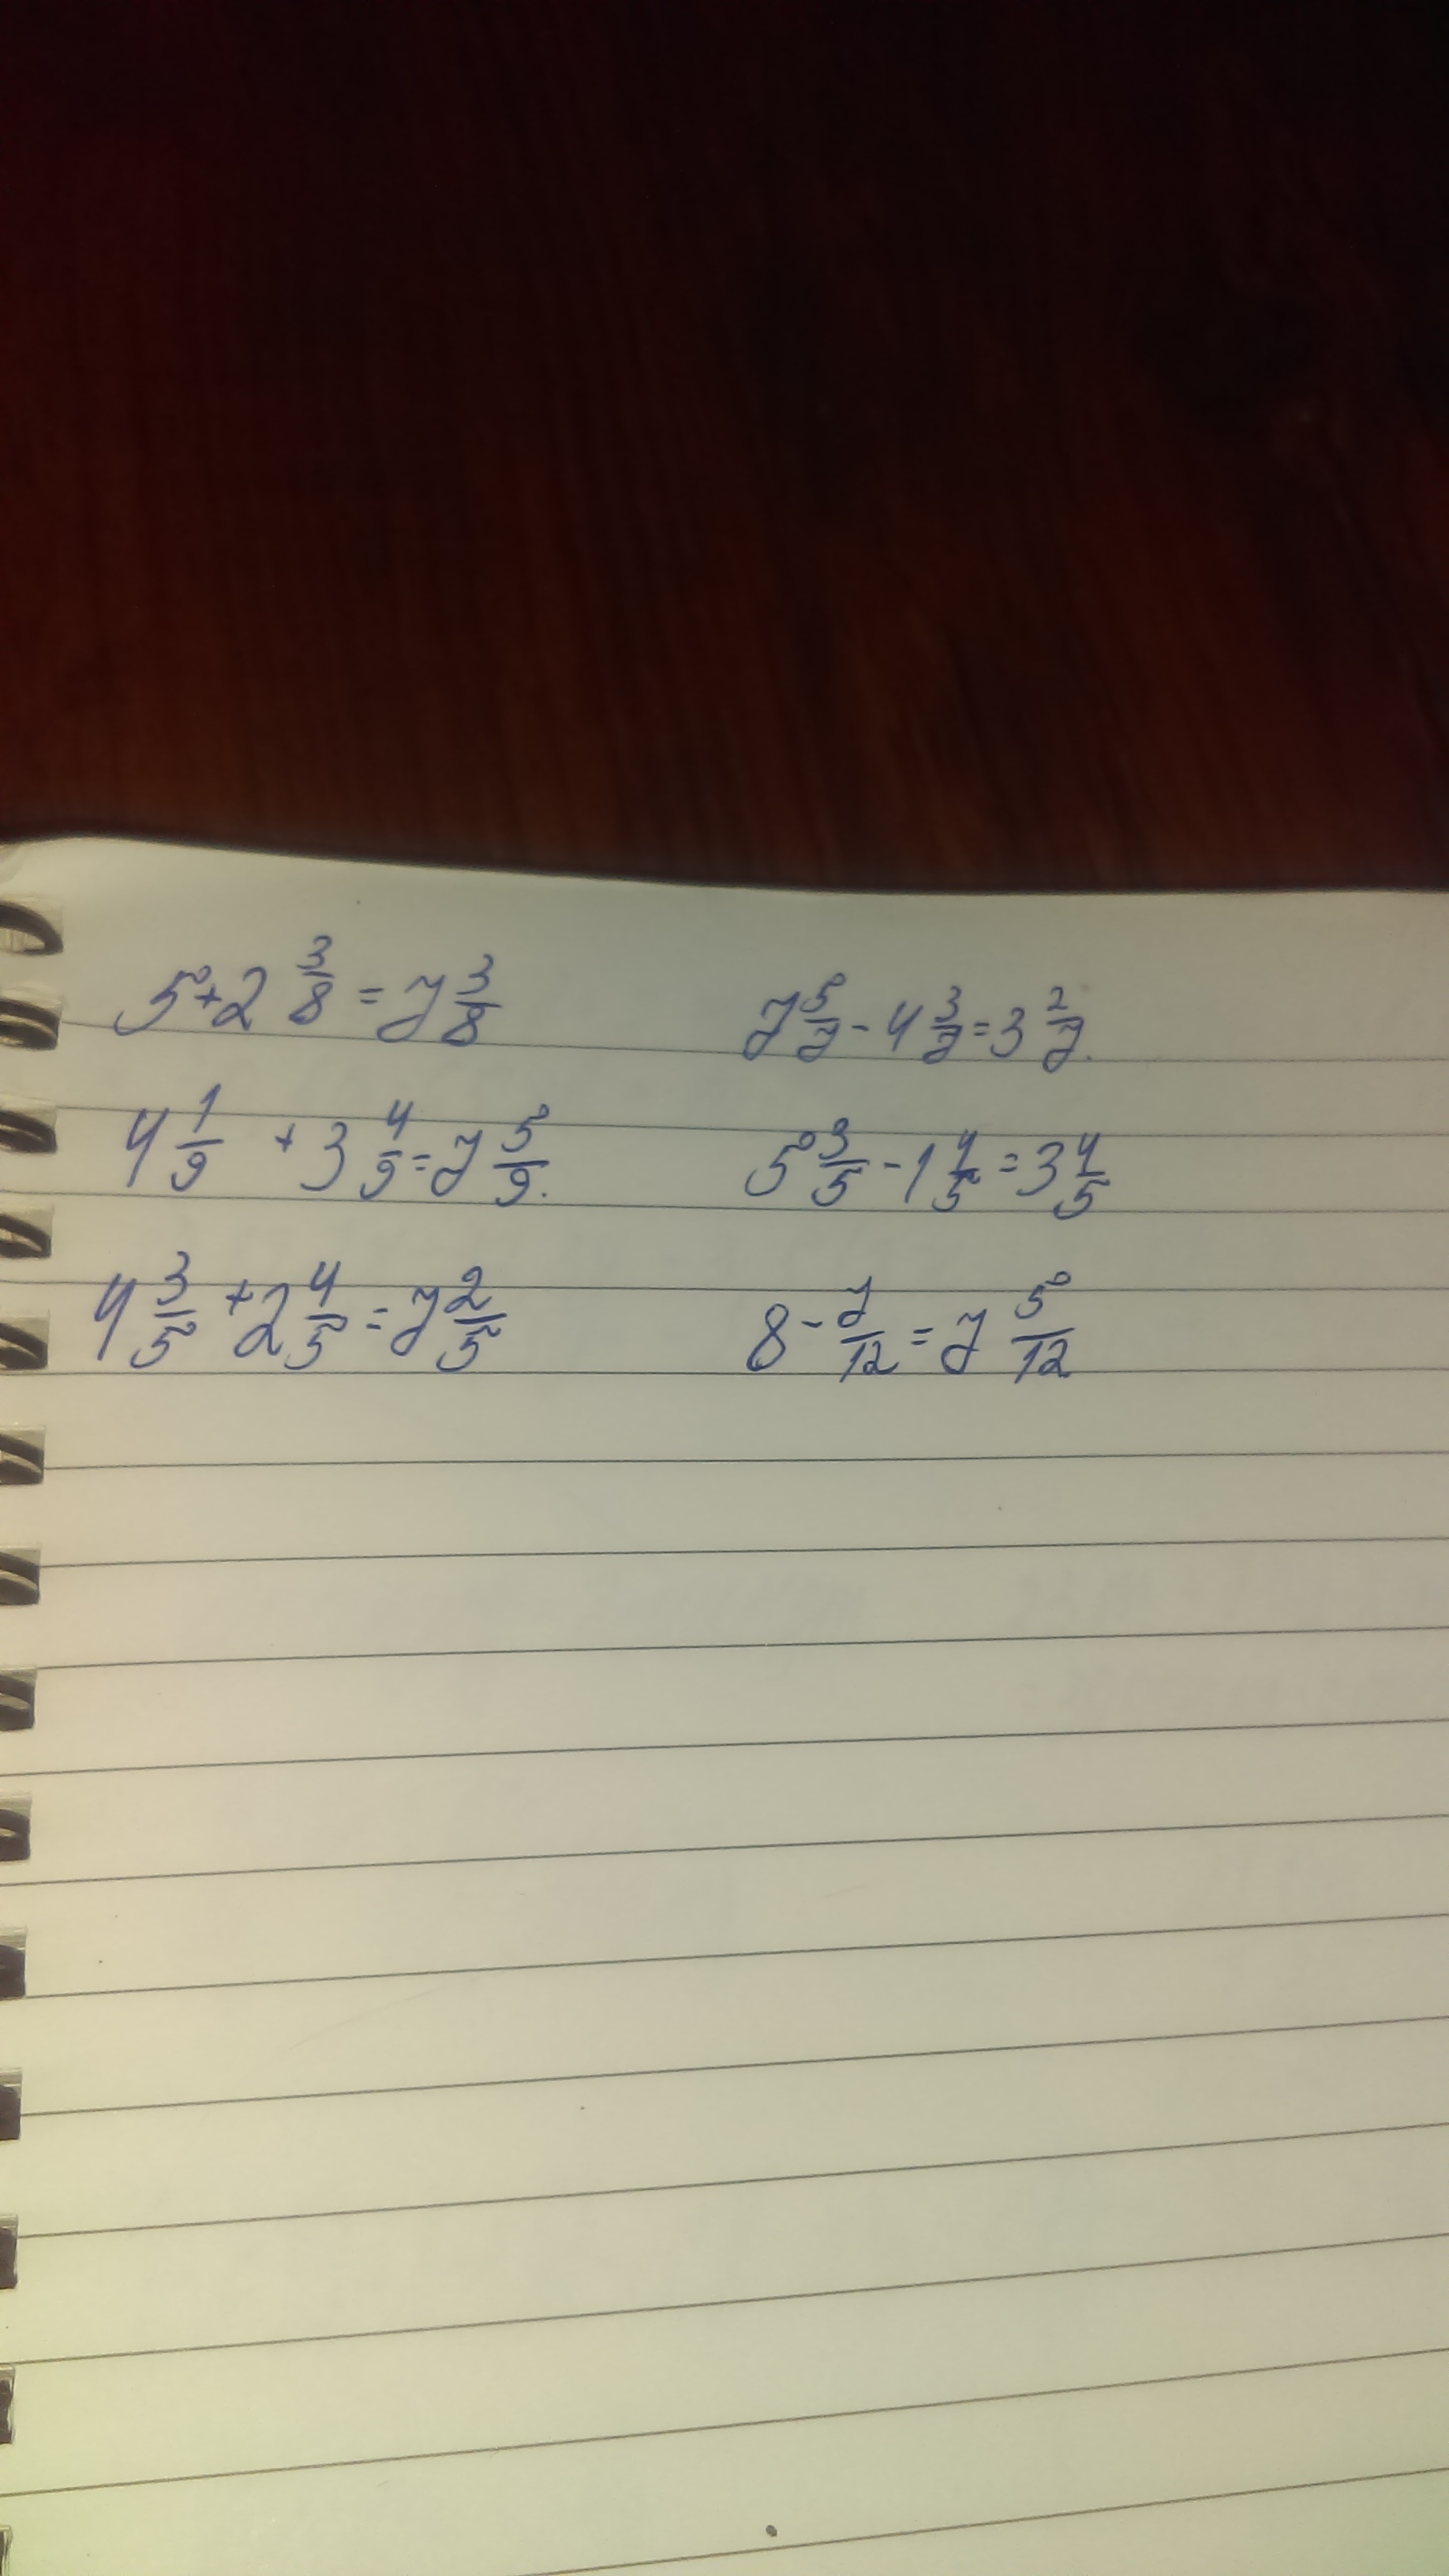 5 + 2 3/8 = 7 3/8
7 5/7 - 4 3/7 = 3 2/7.
4 1/9 + 3 4/9 = 7 5/9.
5 3/5 - 1 4/5 = 3 4/5
4 3/5 + 2 4/5 = 7 2/5
8 - 7/12 = 7 5/12